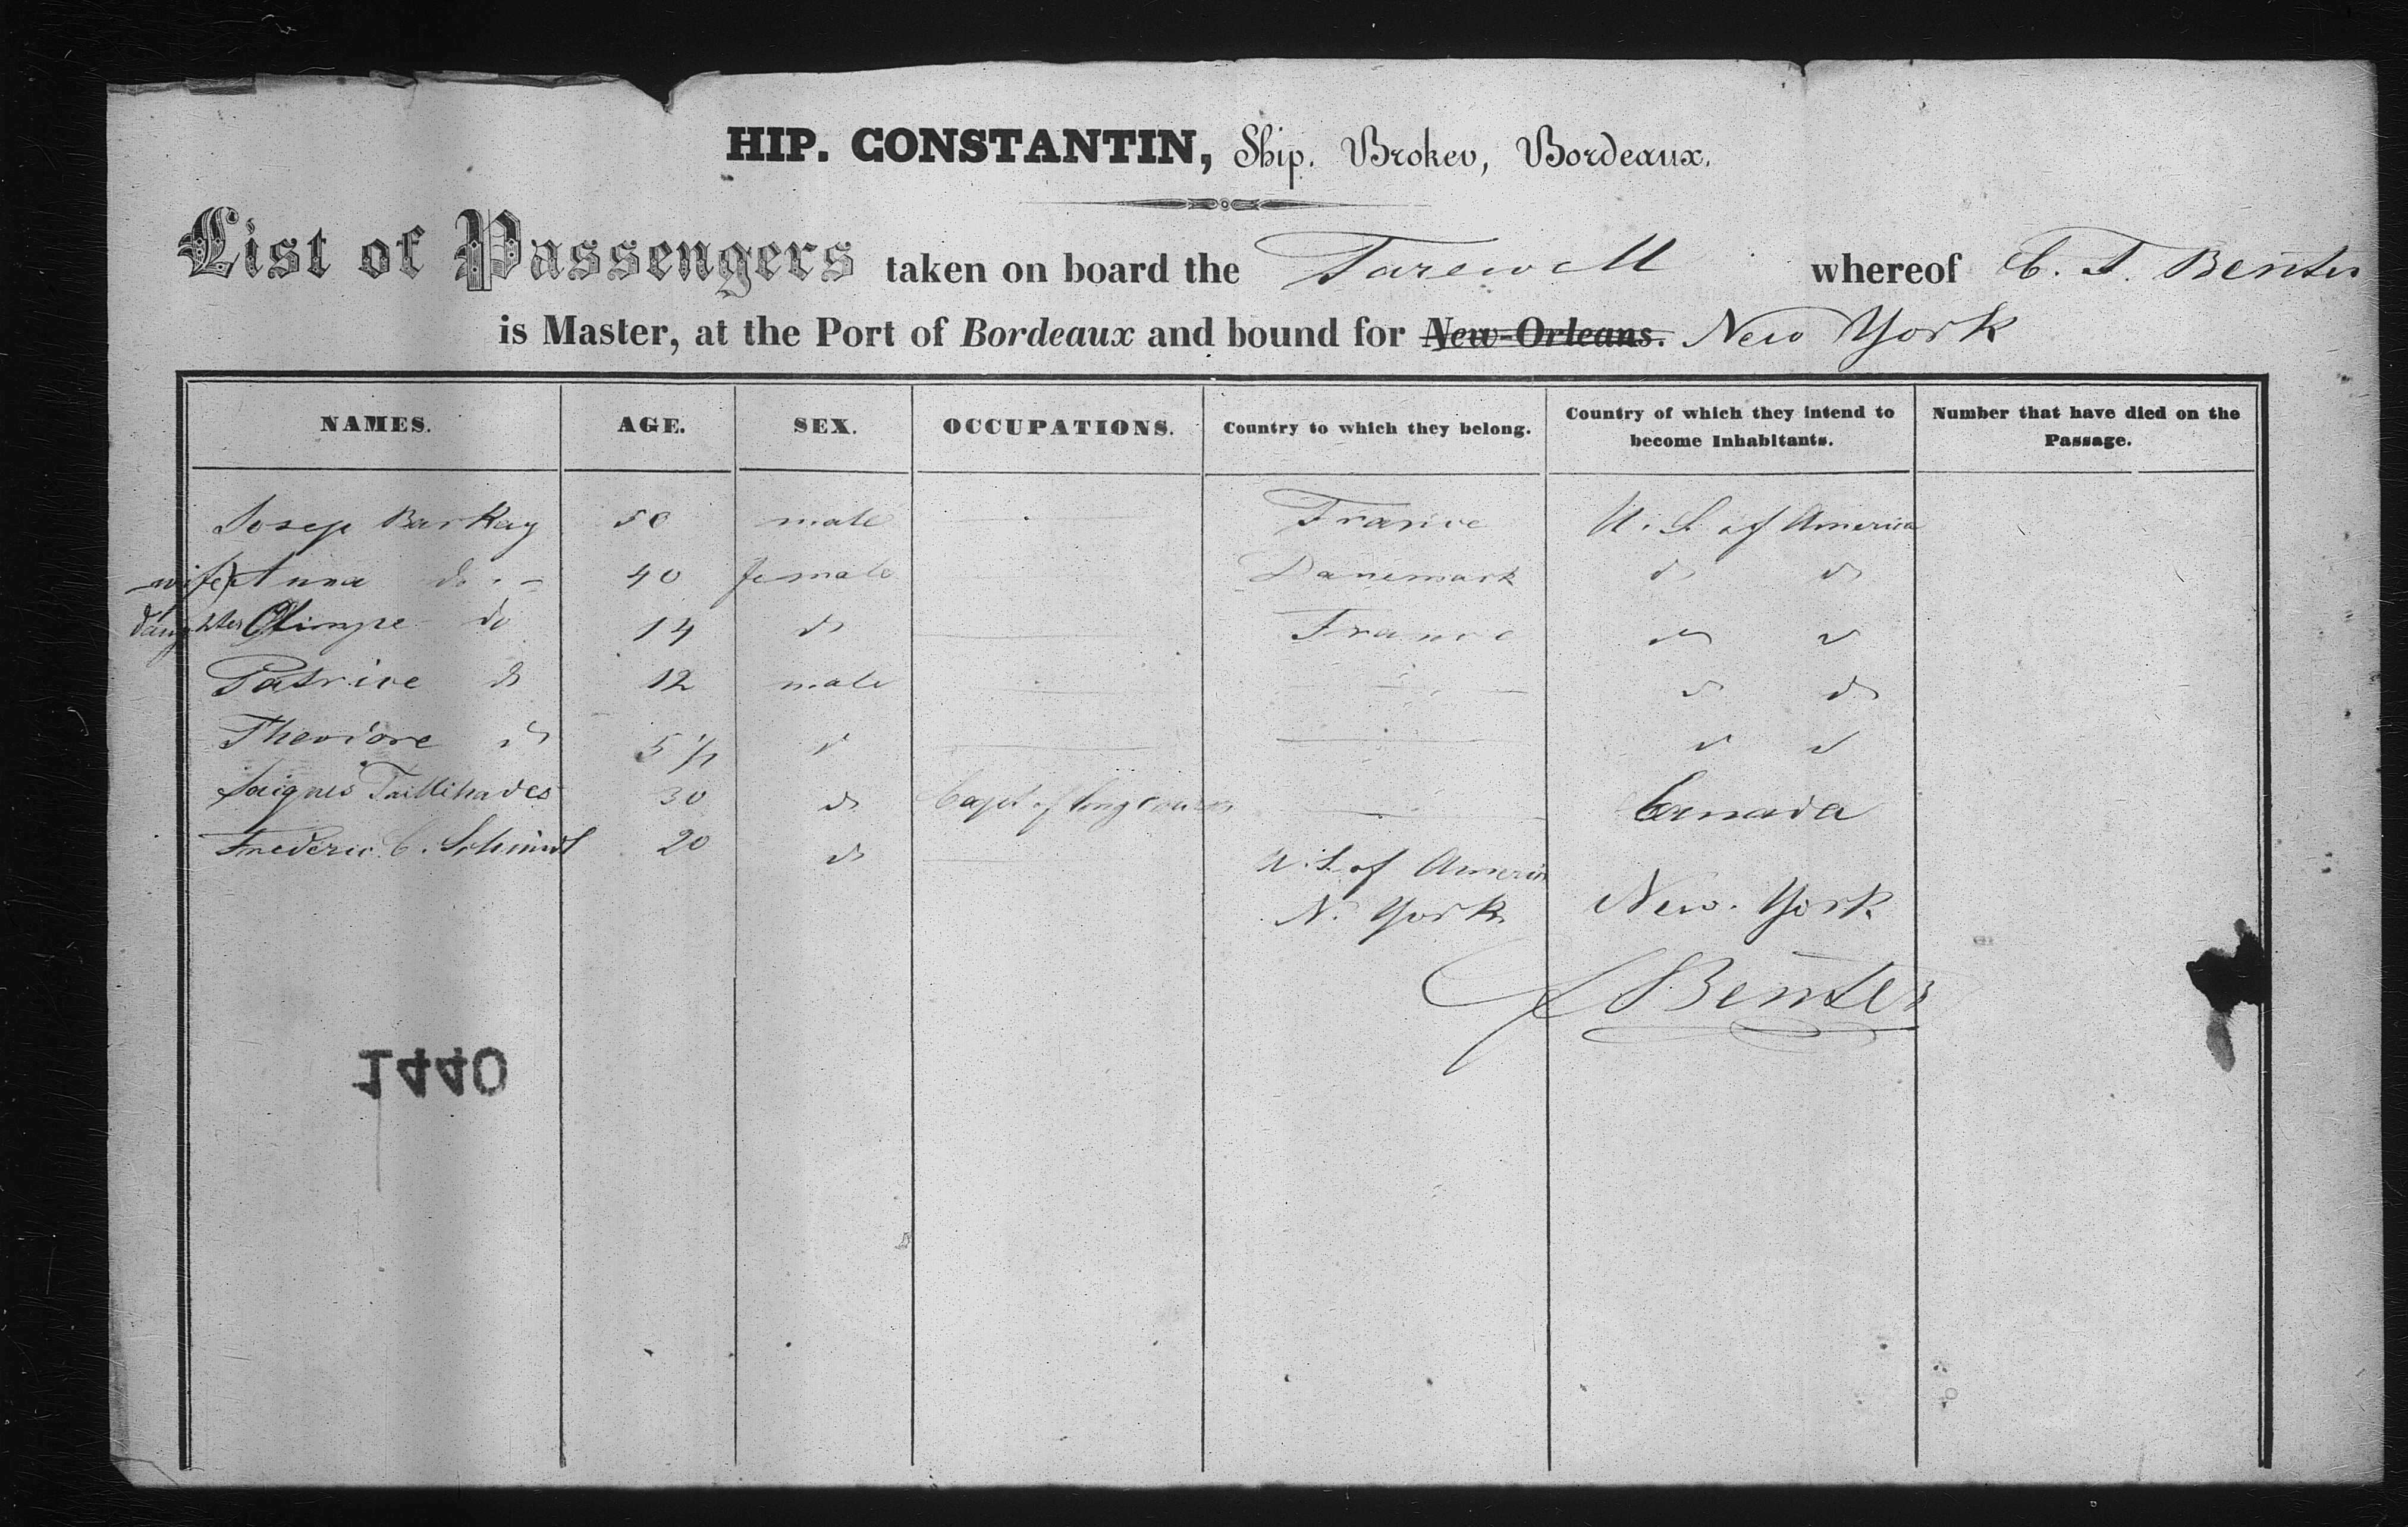 HIP. CONSTANTIN, Ship. Broker, Bordeaux.
List of Passengers taken on board the Farewell whereof C. F. Benter
is Master, at the Port of Bordeaux and bound for New-Orleans. New York
NAMES. AGE. SEX. OCCUPATIONS. Country to which they belong. Country of which they intend to become Inhabitants. Number that have died on the Passage.
Josep Barkay 50 male France U. S. of America
wife) Anna do. 40 female Danemark do do
daughter Olimpe do 14 do France do do
Patrice do 12 male do do
Theodore do 5 1/2 do do do
Taillihades 30 do Capt of long cours Canada
Frederic C. Schmidt 20 do U. S. of America
N. York New. York
Benter
1440